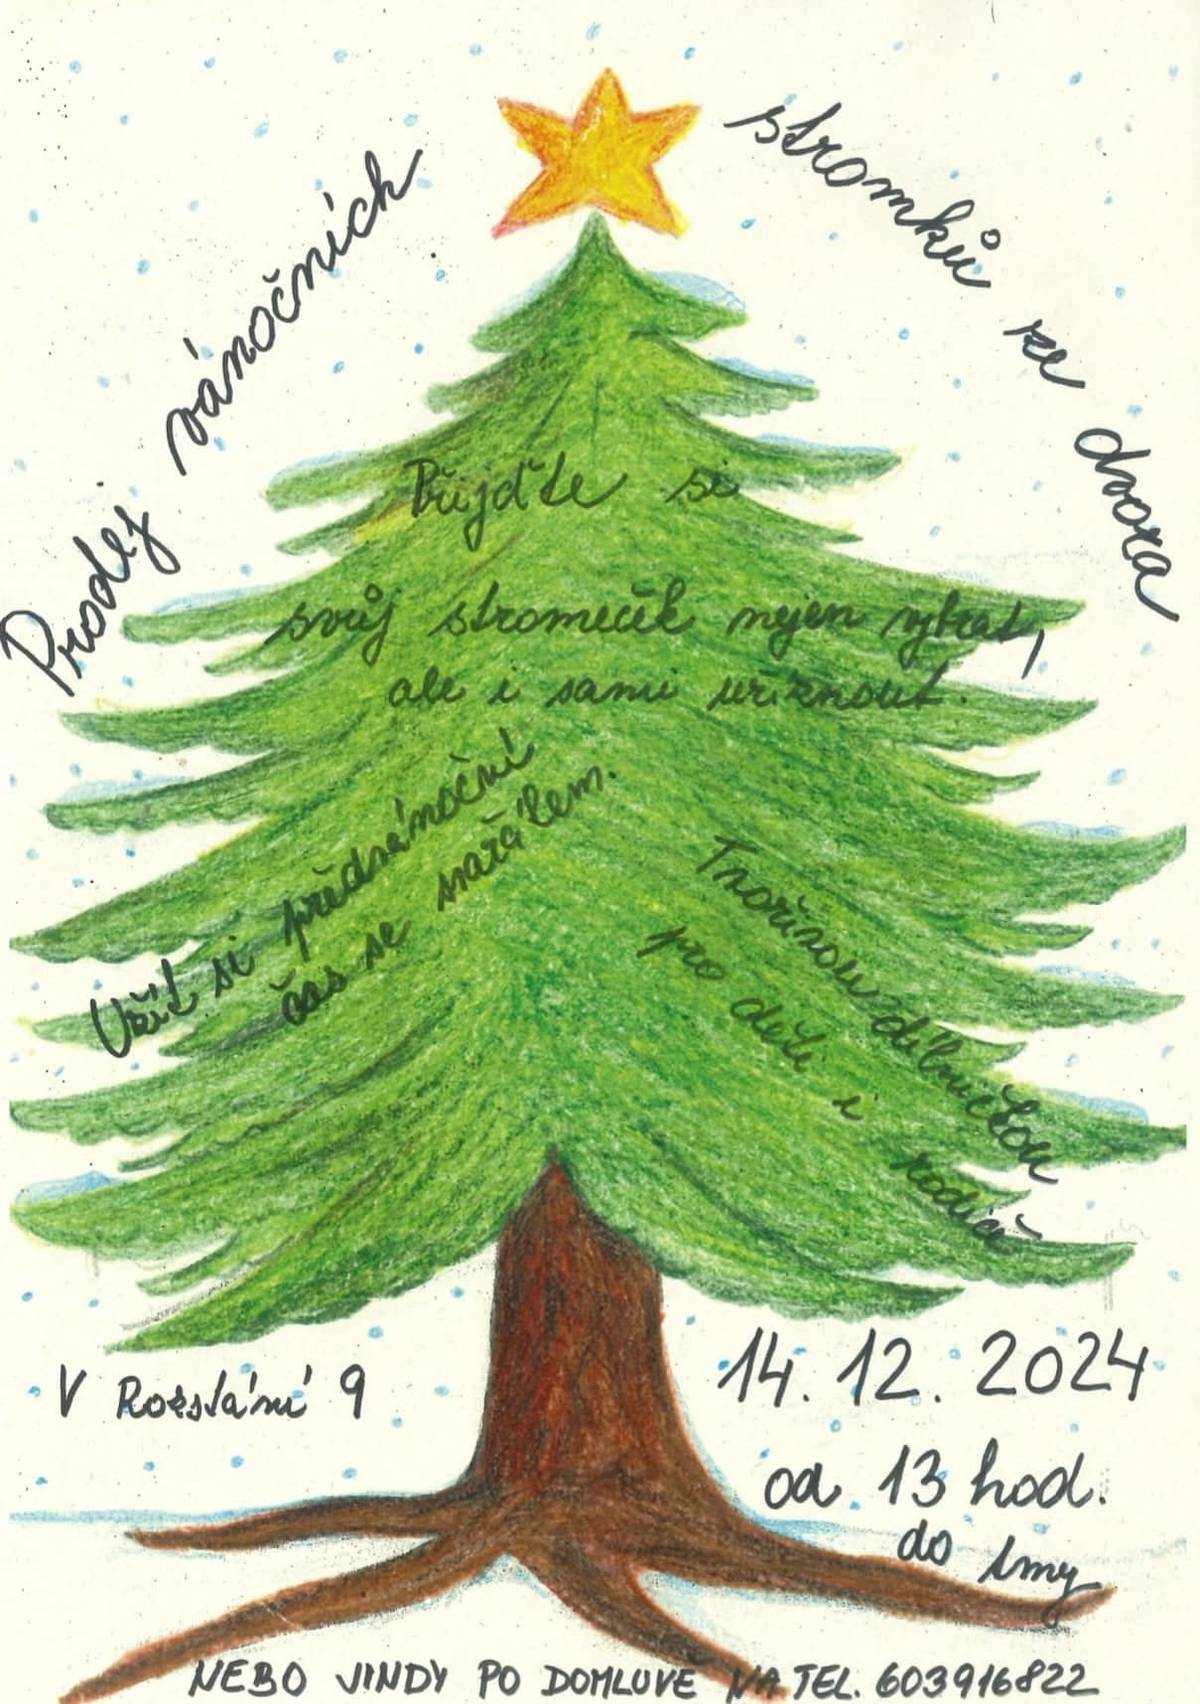 Prodej vánočních stromků ze dvora
Přijďte si
svůj stromeček nejen vybrat,
ale i sami uříznout.
Užít si předvánoční
čas se svařákem.
Tvořivou dílničkou
pro děti i rodiče
V Rozstání 9
14. 12. 2024
od 13 hod.
do tmy
NEBO JINDY PO DOMLUVĚ NA TEL. 603916822